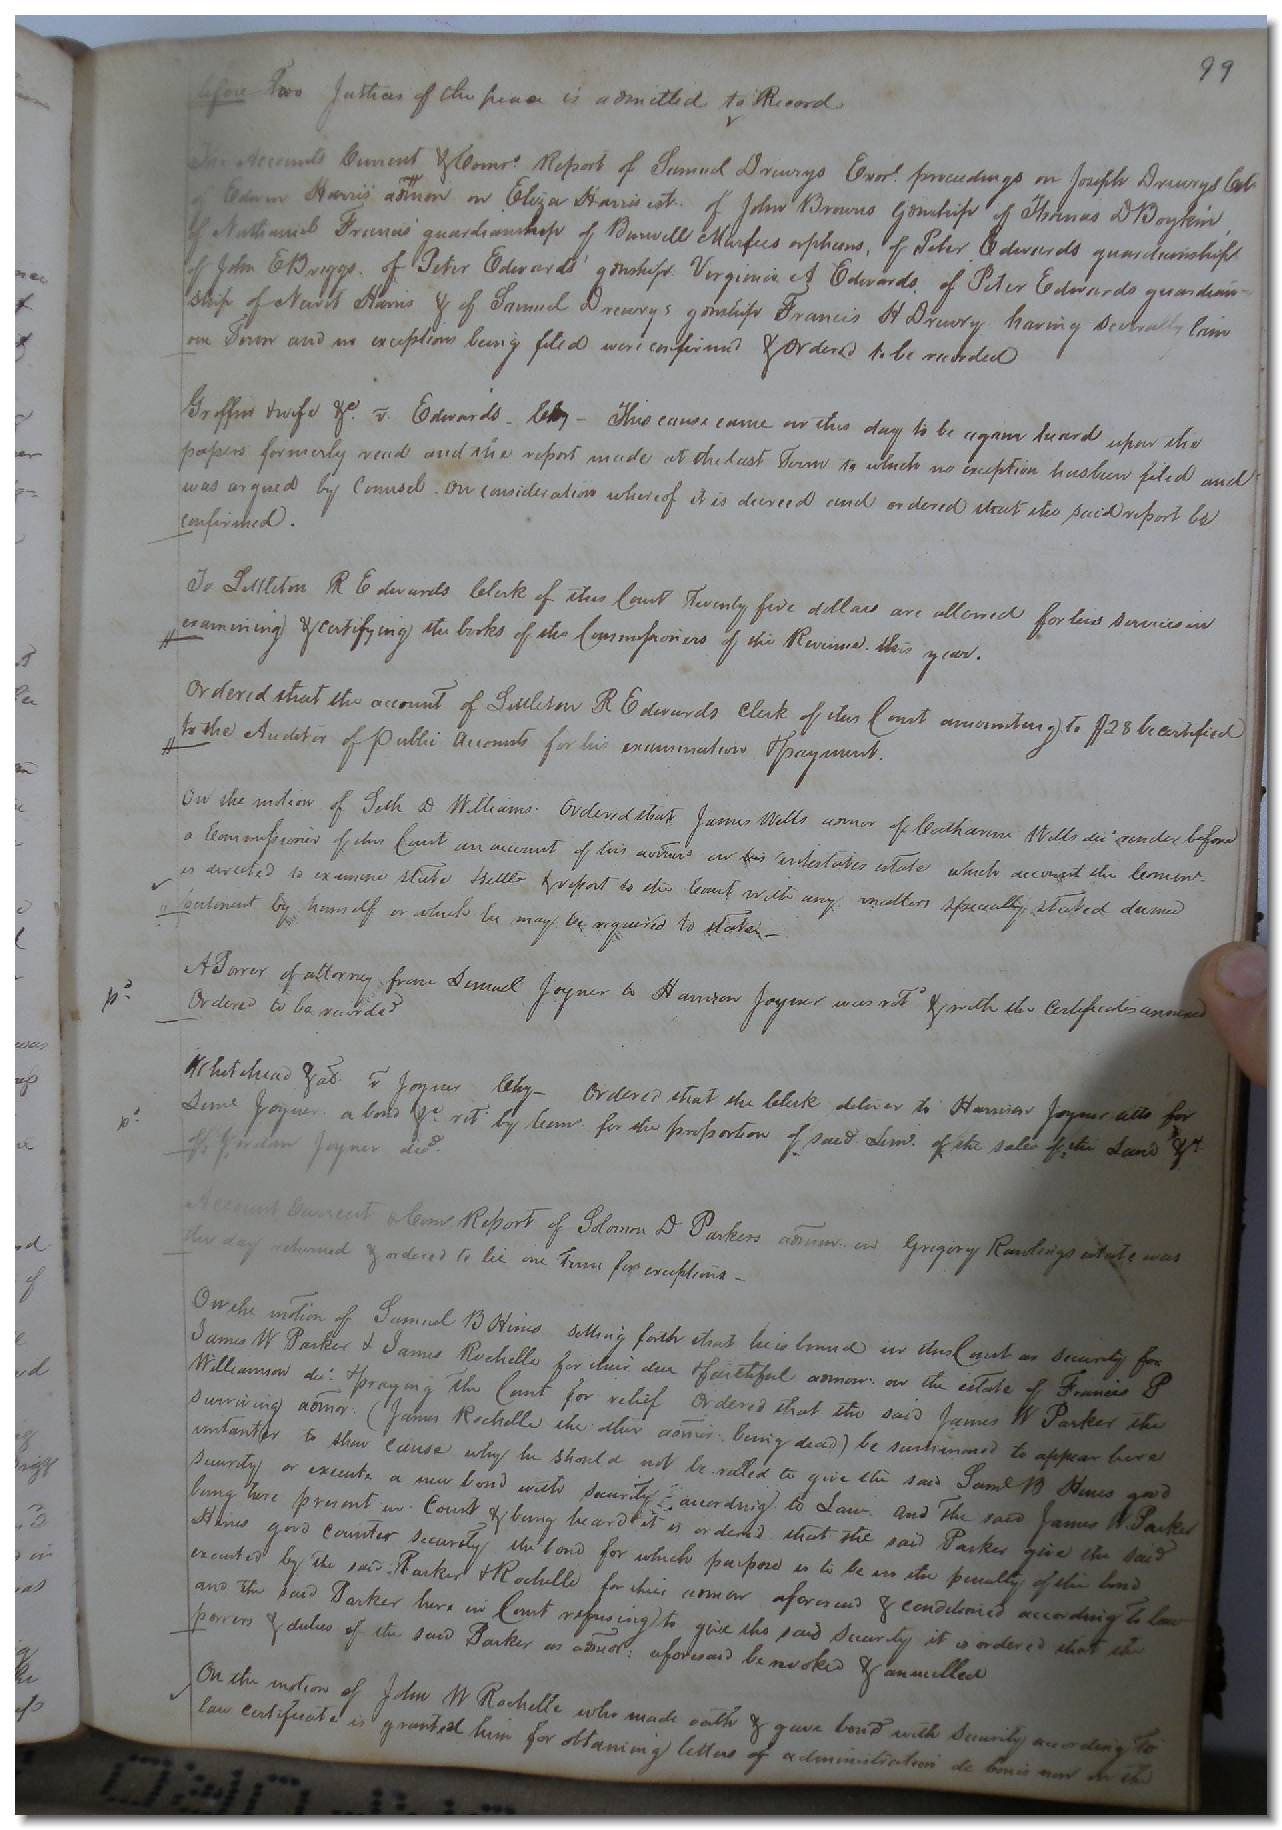 99
before Two Justices of the peace is admitted to Record
The Accounts Current & Comrs. Report of Samuel Drewrys Exor. proceedings on Joseph Drewrys Est.
of Edwin Harris' admon on Eliza Harris est. of John Browns gdnship of Thomas D Boykin,
of Nathaniel Francis' guardianship of Burwell Murfees orphans, of Peter Edwards guardianship
of John E Briggs. of Peter Edwards' gdnship Virginia A Edwards, of Peter Edwards guardian-
ship of Newit Harris & of Samuel Drewrys gdnship Francis H Drewry having severally lain
one Term and no exceptions being filed were confirmed & Ordered to be recorded
Griffin & wife &c. v. Edwards - Chy - This cause came on this day to be again heard upon the
papers formerly read and the report made at the last Term to which no exception has been filed and
was argued by Counsel. On consideration whereof it is decreed and ordered that the said report be
confirmed.
To Littleton R Edwards Clerk of this Court Twenty five dollars are allowed for his services in
examining & certifying the books of the Commissioners of the Revenue this year.
Ordered that the account of Littleton R Edwards Clerk of this Court amounting to $28 be certified
to the Auditor of Public Accounts for his examination & payment.
On the motion of Seth D Williams. Ordered that James Wells admor of Catharine Wells decd. render before
a Commissioner of this Court an account of his actings on his intestates estate which account the Commr.
is directed to examine state settle & report to the Court with any matters specially stated deemed
pertinent by himself or which he may be required to state -
pd. A Power of attorney from Lemuel Joyner to Harrison Joyner was retd. & with the certificates annexed
Ordered to be recorded
Whitehead & al. v Joyner Chy - Ordered that the Clerk deliver to Harrison Joyner atto for
pd. Leml Joyner a bond &c retd. by Comr. for the proportion of said Lem. of the sale of the Land &c
of Jordan Joyner decd.
Account Current & Comrs. Report of Solomon D Parkers admon. on Gregory Rawlings estate was
this day returned & ordered to lie one Term for exceptions -
On the motion of Samuel B Hines setting forth that he is bound in this Court as security for
James W Parker & James Rochelle for their due & faithful admon. on the estate of Francis P
Williamson decd. & praying the Court for relief Ordered that the said James W Parker the
surviving admor. (James Rochelle the other admor. being dead) be summoned to appear here
instanter to shew cause why he should not be ruled to give the said Saml B Hines good
security or execute a new bond with security according to Law. and the said James W. Parker
being here present in Court & being heard it is ordered that the said Parker give the said
Hines good counter security the bond for which purpose is to be in the penalty of the bond
executed by the said Parker & Rochelle for their admon aforesaid & conditioned according to law
and the said Parker here in Court refusing to give the said security it is ordered that the
powers & duties of the said Parker as admor. aforesaid be revoked & annulled
On the motion of John W Rochelle who made oath & gave bond with security according to
law certificate is granted him for obtaining letters of administration de bonis non on the